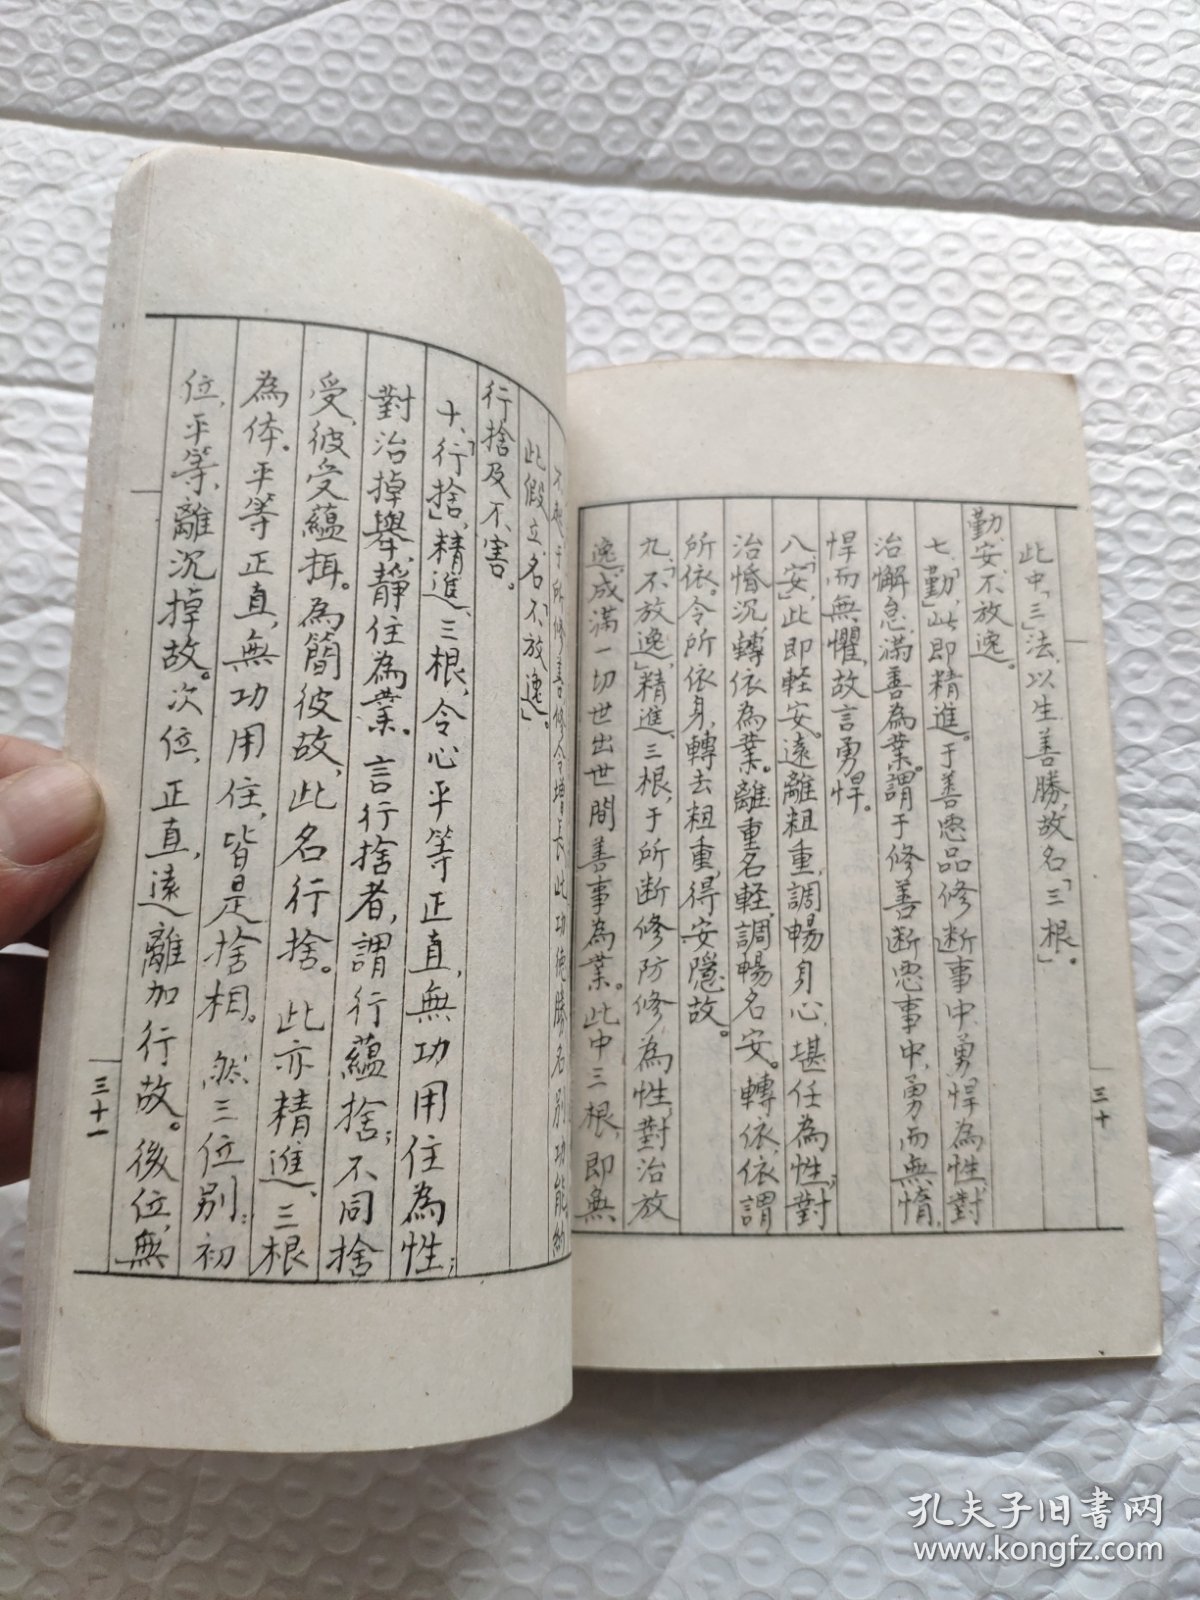 此中「三」法，以生善勝，故名「三根」。
勤、安、不放逸。
七、「勤」，此即精進。于善惡品修断事中，勇悍為性，對
治懈怠，滿善為業。謂于修善断惡事中，勇而無惰，
悍而無懼，故言勇悍。
八、「安」，此即軽安。遠離粗重，調暢身心，堪任為性，對
治惛沉，轉依為業。離重名軽，調暢名安。轉依，依謂
所依。令所依身，轉去粗重，得安隱故。
九、「不放逸」，精進、三根，于所断修防修為性，對治放
逸，成滿一切世出世間善事為業。此中三根，即無
三十
不起于所修善修令增長此功能勝名别功能
此假立名「不放逸」。
行捨及不害。
十、「行捨」，精進、三根，令心平等正直，無功用住為性；
對治掉舉，靜住為業。言行捨者，謂行蘊捨；不同捨
受，彼受蘊揖。為簡彼故，此名行捨。此亦精進、三根
為体。平等正直，無功用住，皆是捨相。然三位别：初
位，平等，離沉掉故。次位，正直，遠離加行故。後位，無
三十一
孔夫子旧书网
www.kongfz.com